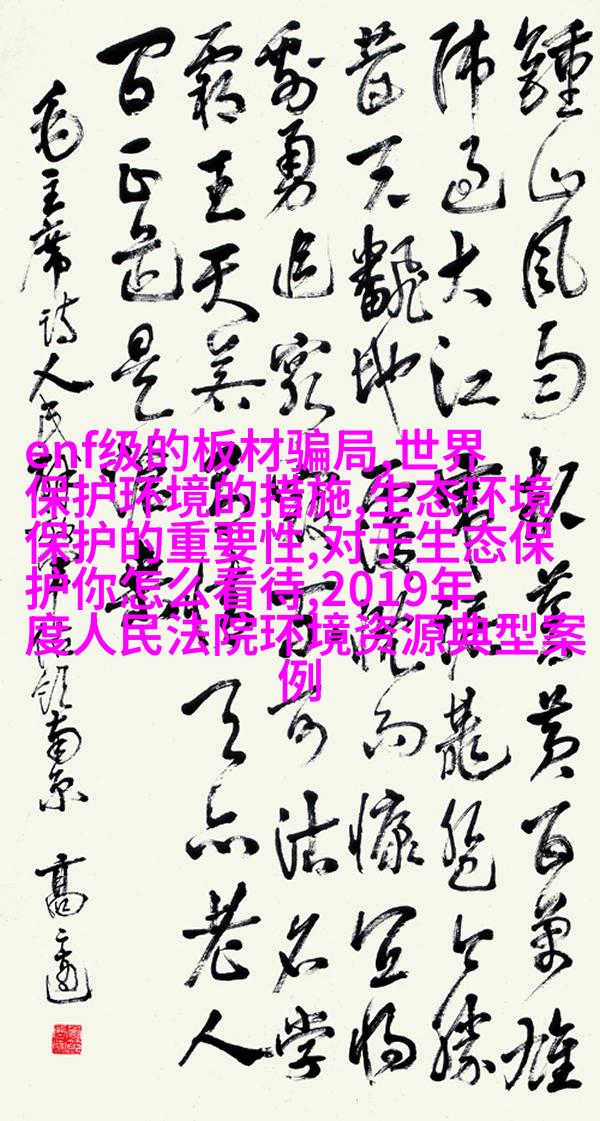 enf级的板材骗局,世界
保护环境的措施,生态环境
保护的重要性,对于生态保
护你怎么看待,2019年
度人民法院环境资源典型案
例
鍾山風雨起蒼黄百萬雄
师过大江虎踞龍盤今勝
昔天翻地覆慨而慷宜将
剩勇追窮寇不可沽名学
霸王天若有情天亦老人
间正道是滄桑
毛主席诗人民解放军占领南京